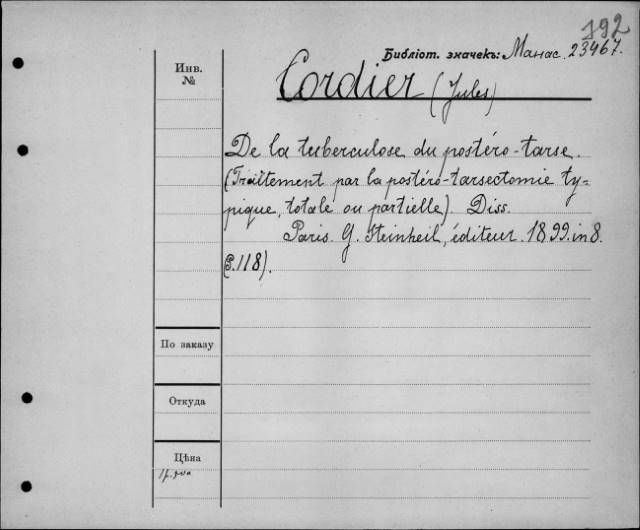 192
Библіот. значекъ: Манас. 23467.
Инв.
№
Cordier (Jules)
De la tuberculose du postéro-tarse.
(Traitement par la postéro-tarsectomie ty-
pique, totale ou partielle). Diss.
Paris. G. Steinheil, éditeur. 1899. in 8.
(P. 118).
По заказу
Откуда
Цѣна